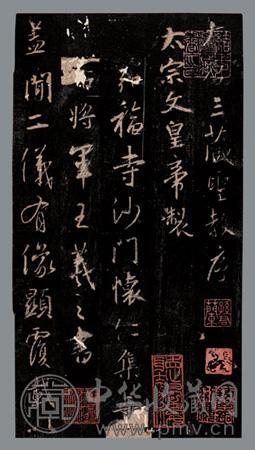 三藏聖教序
太宗文皇帝製
弘福寺沙門懷仁集
將軍王羲之書
蓋聞二儀有像顯覆
中华收藏网
www.pmv.cn